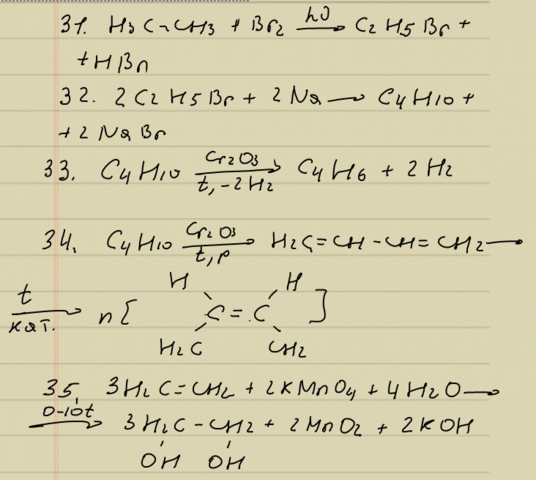 31. H3C-CH3 + Br2 —hν→ C2H5Br +
+ HBr
32. 2C2H5Br + 2Na → C4H10 +
+ 2NaBr
33. C4H10 —Cr2O3 / t, -2H2→ C4H6 + 2H2
34. C4H10 —Cr2O3 / t, p→ H2C=CH-CH=CH2 →
t / кат. → n[ H H
C=C ]
H2C CH2
35. 3H2C=CH2 + 2KMnO4 + 4H2O →
0-10t → 3H2C-CH2 + 2MnO2 + 2KOH
OH OH